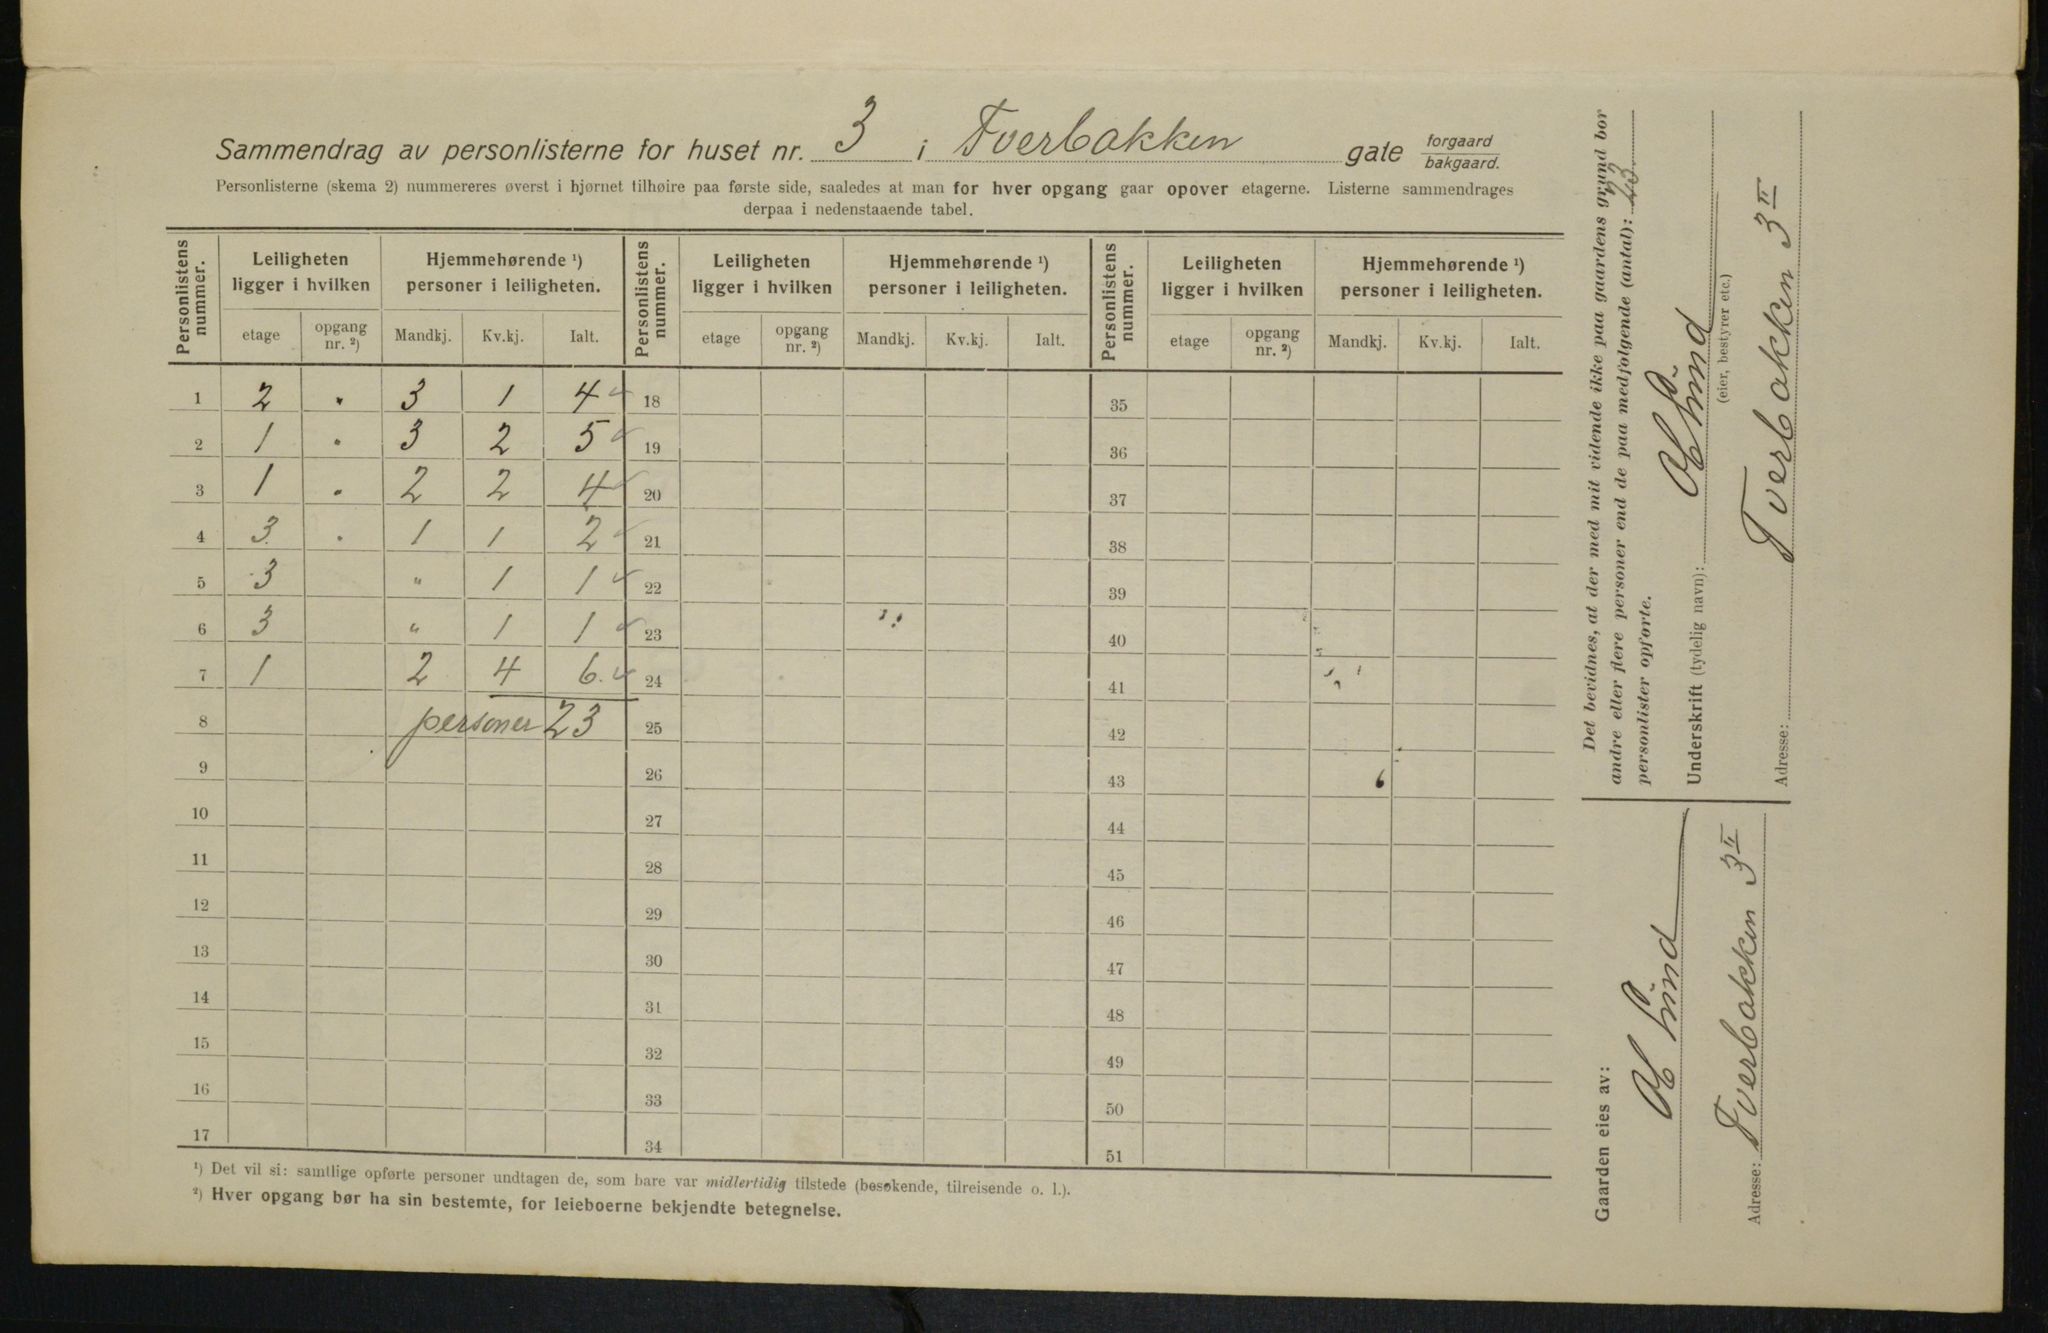 Sammendrag av personlisterne for huset nr. 3 i Tverbakken gate forgaard bakgaard.
Personlisterne (skema 2) nummereres øverst i hjørnet tilhøire paa første side, saaledes at man for hver opgang gaar opover etagerne. Listerne sammendrages
derpaa i nedenstaaende tabel.
Personlistens nummer. Leiligheten ligger i hvilken Hjemmehørende ¹) personer i leiligheten. Personlistens nummer. Leiligheten ligger i hvilken Hjemmehørende ¹) personer i leiligheten. Personlistens nummer. Leiligheten ligger i hvilken Hjemmehørende ¹) personer i leiligheten.
etage opgang nr. ²) Mandkj. Kv.kj. Ialt. etage opgang nr. ²) Mandkj. Kv.kj. Ialt. etage opgang nr. ²) Mandkj. Kv.kj. Ialt.
1 2 " 3 1 4 ✓ 18 35
2 1 " 3 2 5 ✓ 19 36
3 1 " 2 2 4 ✓ 20 37
4 3 " 1 1 2 ✓ 21 38
5 3 " 1 1 ✓ 22 39
6 3 " 1 1 ✓ 23 40
7 1 2 4 6. ✓ 24 41
8 personer 23 25 42
9 26 43
10 27 44
11 28 45
12 29 46
13 30 47
14 31 48
15 32 49
16 33 50
17 34 51
¹) Det vil si: samtlige opførte personer undtagen de, som bare var midlertidig tilstede (besøkende, tilreisende o. l.).
²) Hver opgang bør ha sin bestemte, for leieboerne bekjendte betegnelse.
Det bevidnes, at der med mit vidende ikke paa gaardens grund bor
andre eller flere personer end de paa medfølgende (antal): 23.
personlister opførte.
Underskrift (tydelig navn): Sund
(eier, bestyrer etc.)
Adresse: Tverbakken 3 II
Gaarden eies av:
Sund
Adresse: Tverbakken 3 II